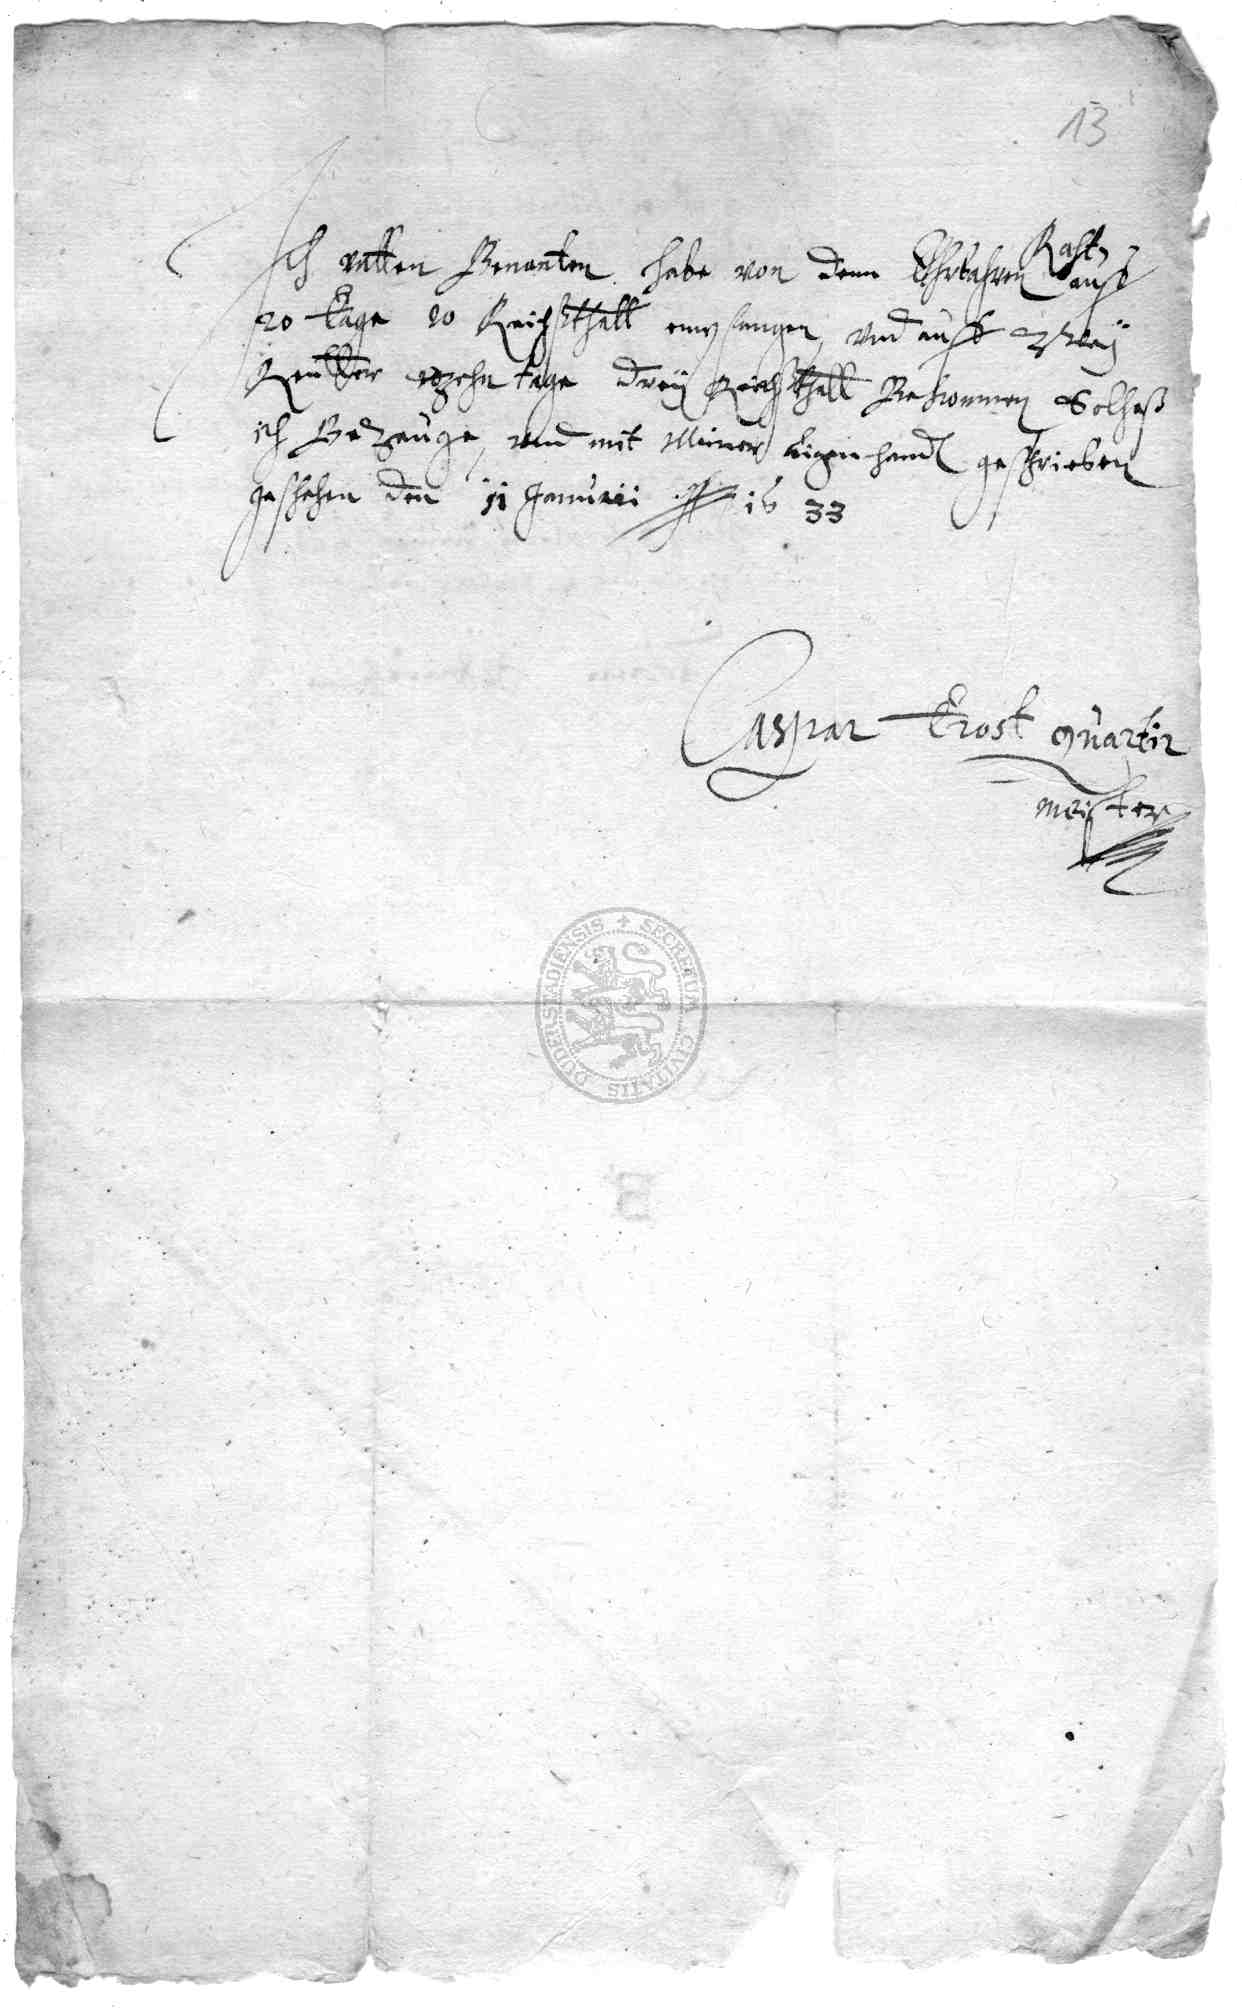 13
Ich untten Benanten habe von dem Ehrbahren Raht auff
20 tage 20 Reichsthall empfangen, vnd auff Zweÿ
Reutter zehn tage dreÿ Reichsthall Bekommen Solches
ich Bezeuge, vnd mit Meiner eigen handt geschrieben
geschehen den 11 Januarii 16 33
Caspar Trost Quartir
meister
SECRETUM CIVITATIS DUDERSTADIENSIS
B